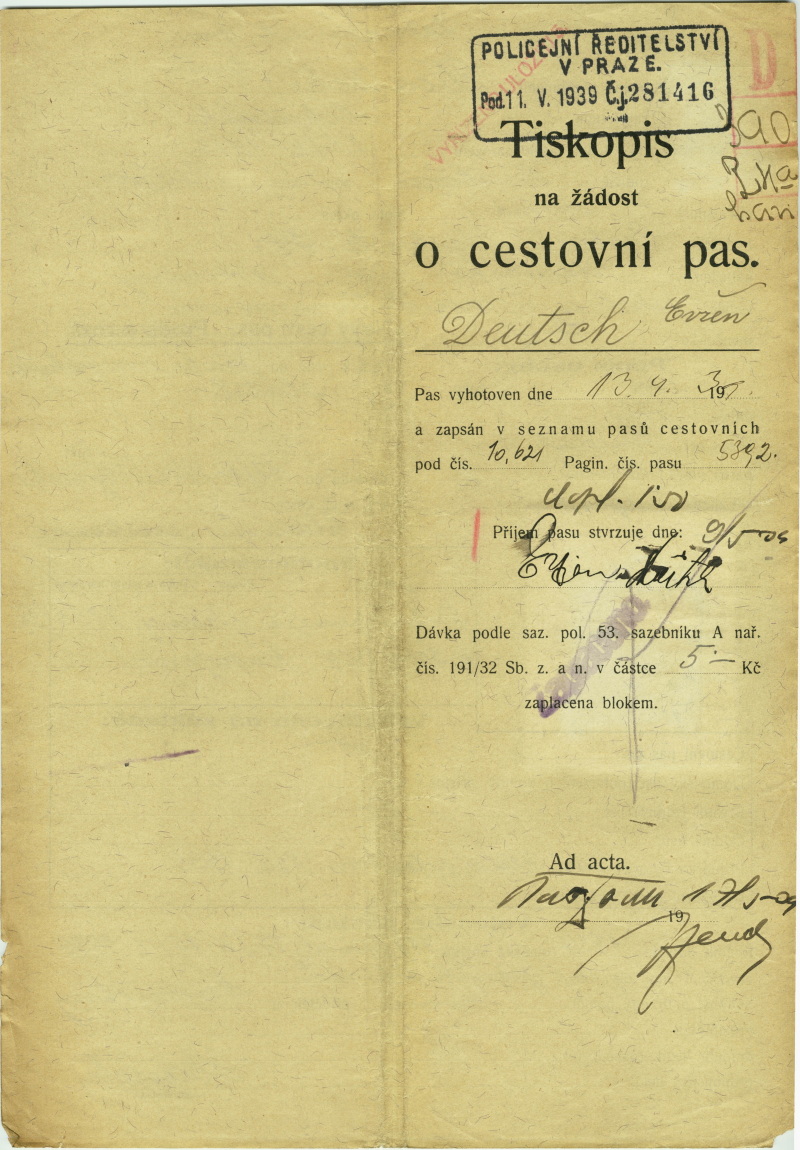 POLICEJNÍ ŘEDITELSTVÍ
V PRAZE.
Pod. 11. V. 1939 Č.j. 281416
D
Tiskopis
na žádost
o cestovní pas.
Deutsch Evžen
Pas vyhotoven dne 13. 4. 19
a zapsán v seznamu pasů cestovních
pod čís. 10,621 Pagin. čís. pasu 5392.
dopl.
Příjem pasu stvrzuje dne: 9/5
Evžen
Dávka podle saz. pol. 53. sazebníku A nař.
čís. 191/32 Sb. z. a n. v částce 5.— Kč
zaplacena blokem.
Ad acta.
19